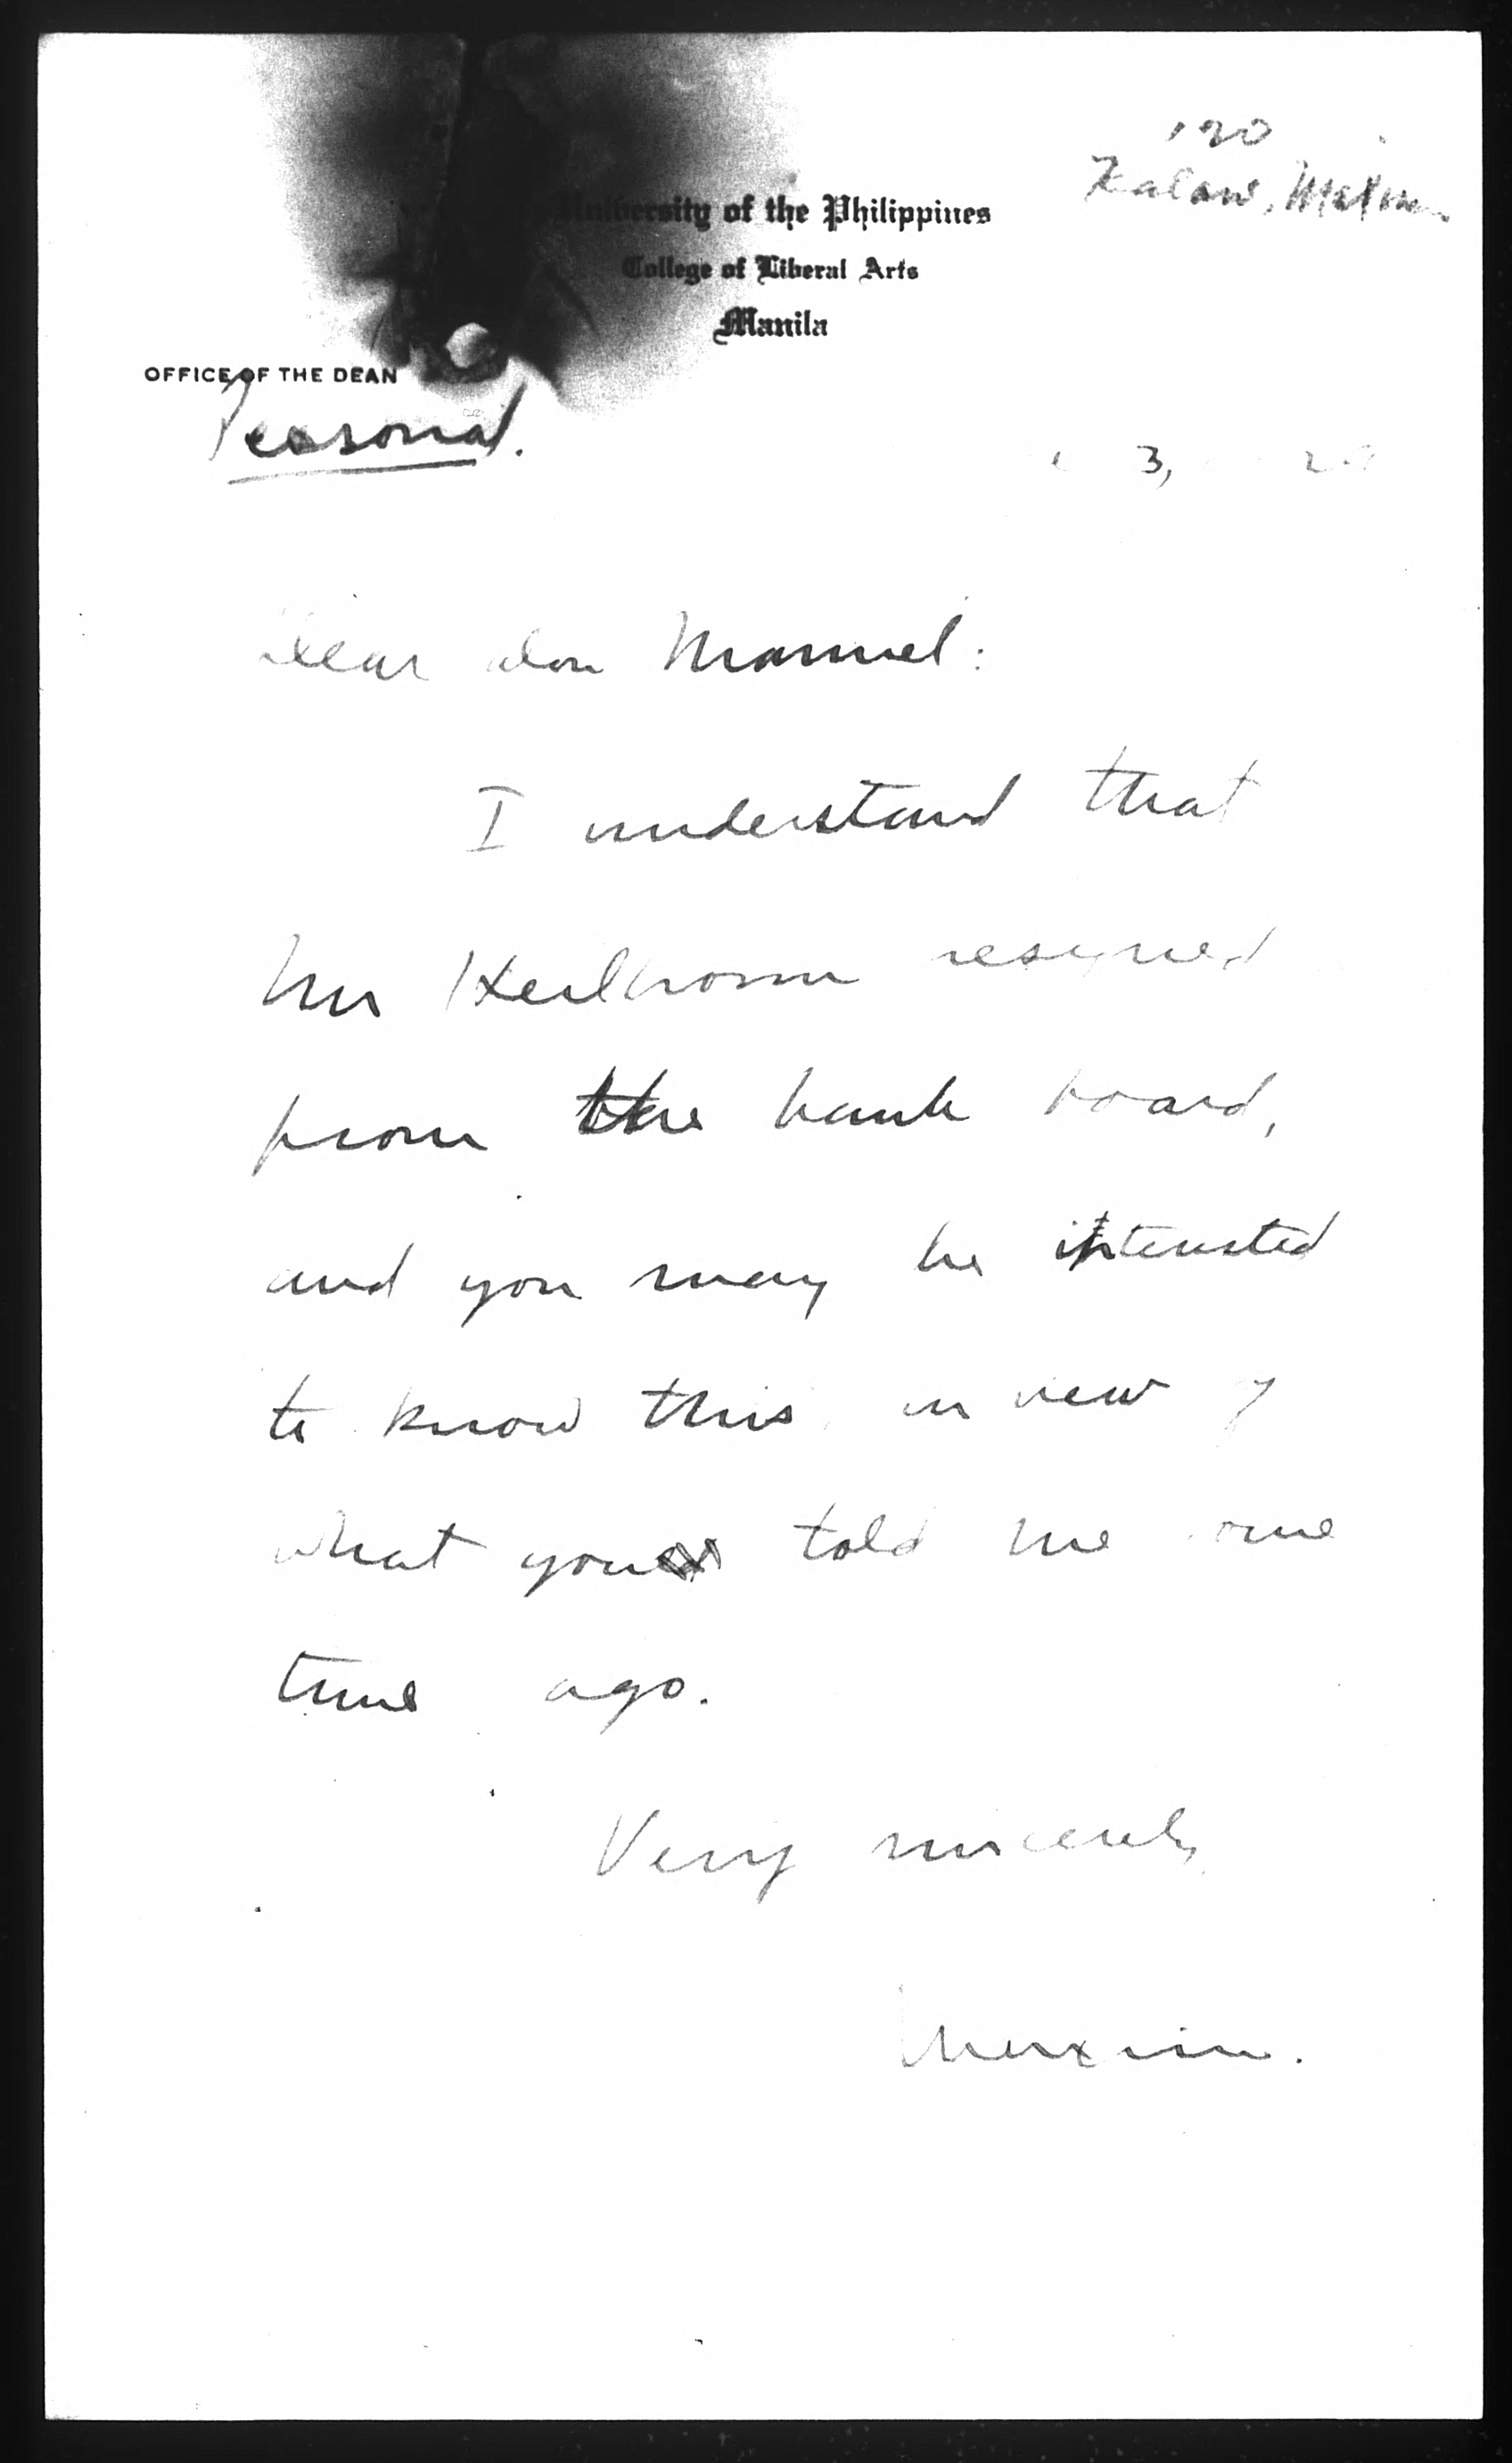 120
Kalaw, Maximo
University of the Philippines
College of Liberal Arts
Manila
OFFICE OF THE DEAN
Personal.
3,
Dear don Manuel:
I understand that
Mr Heilbronn resigned
from the bank board,
and you may be interested
to know this, in view of
what you told me some
time ago.
Very sincerely,
Maximo.